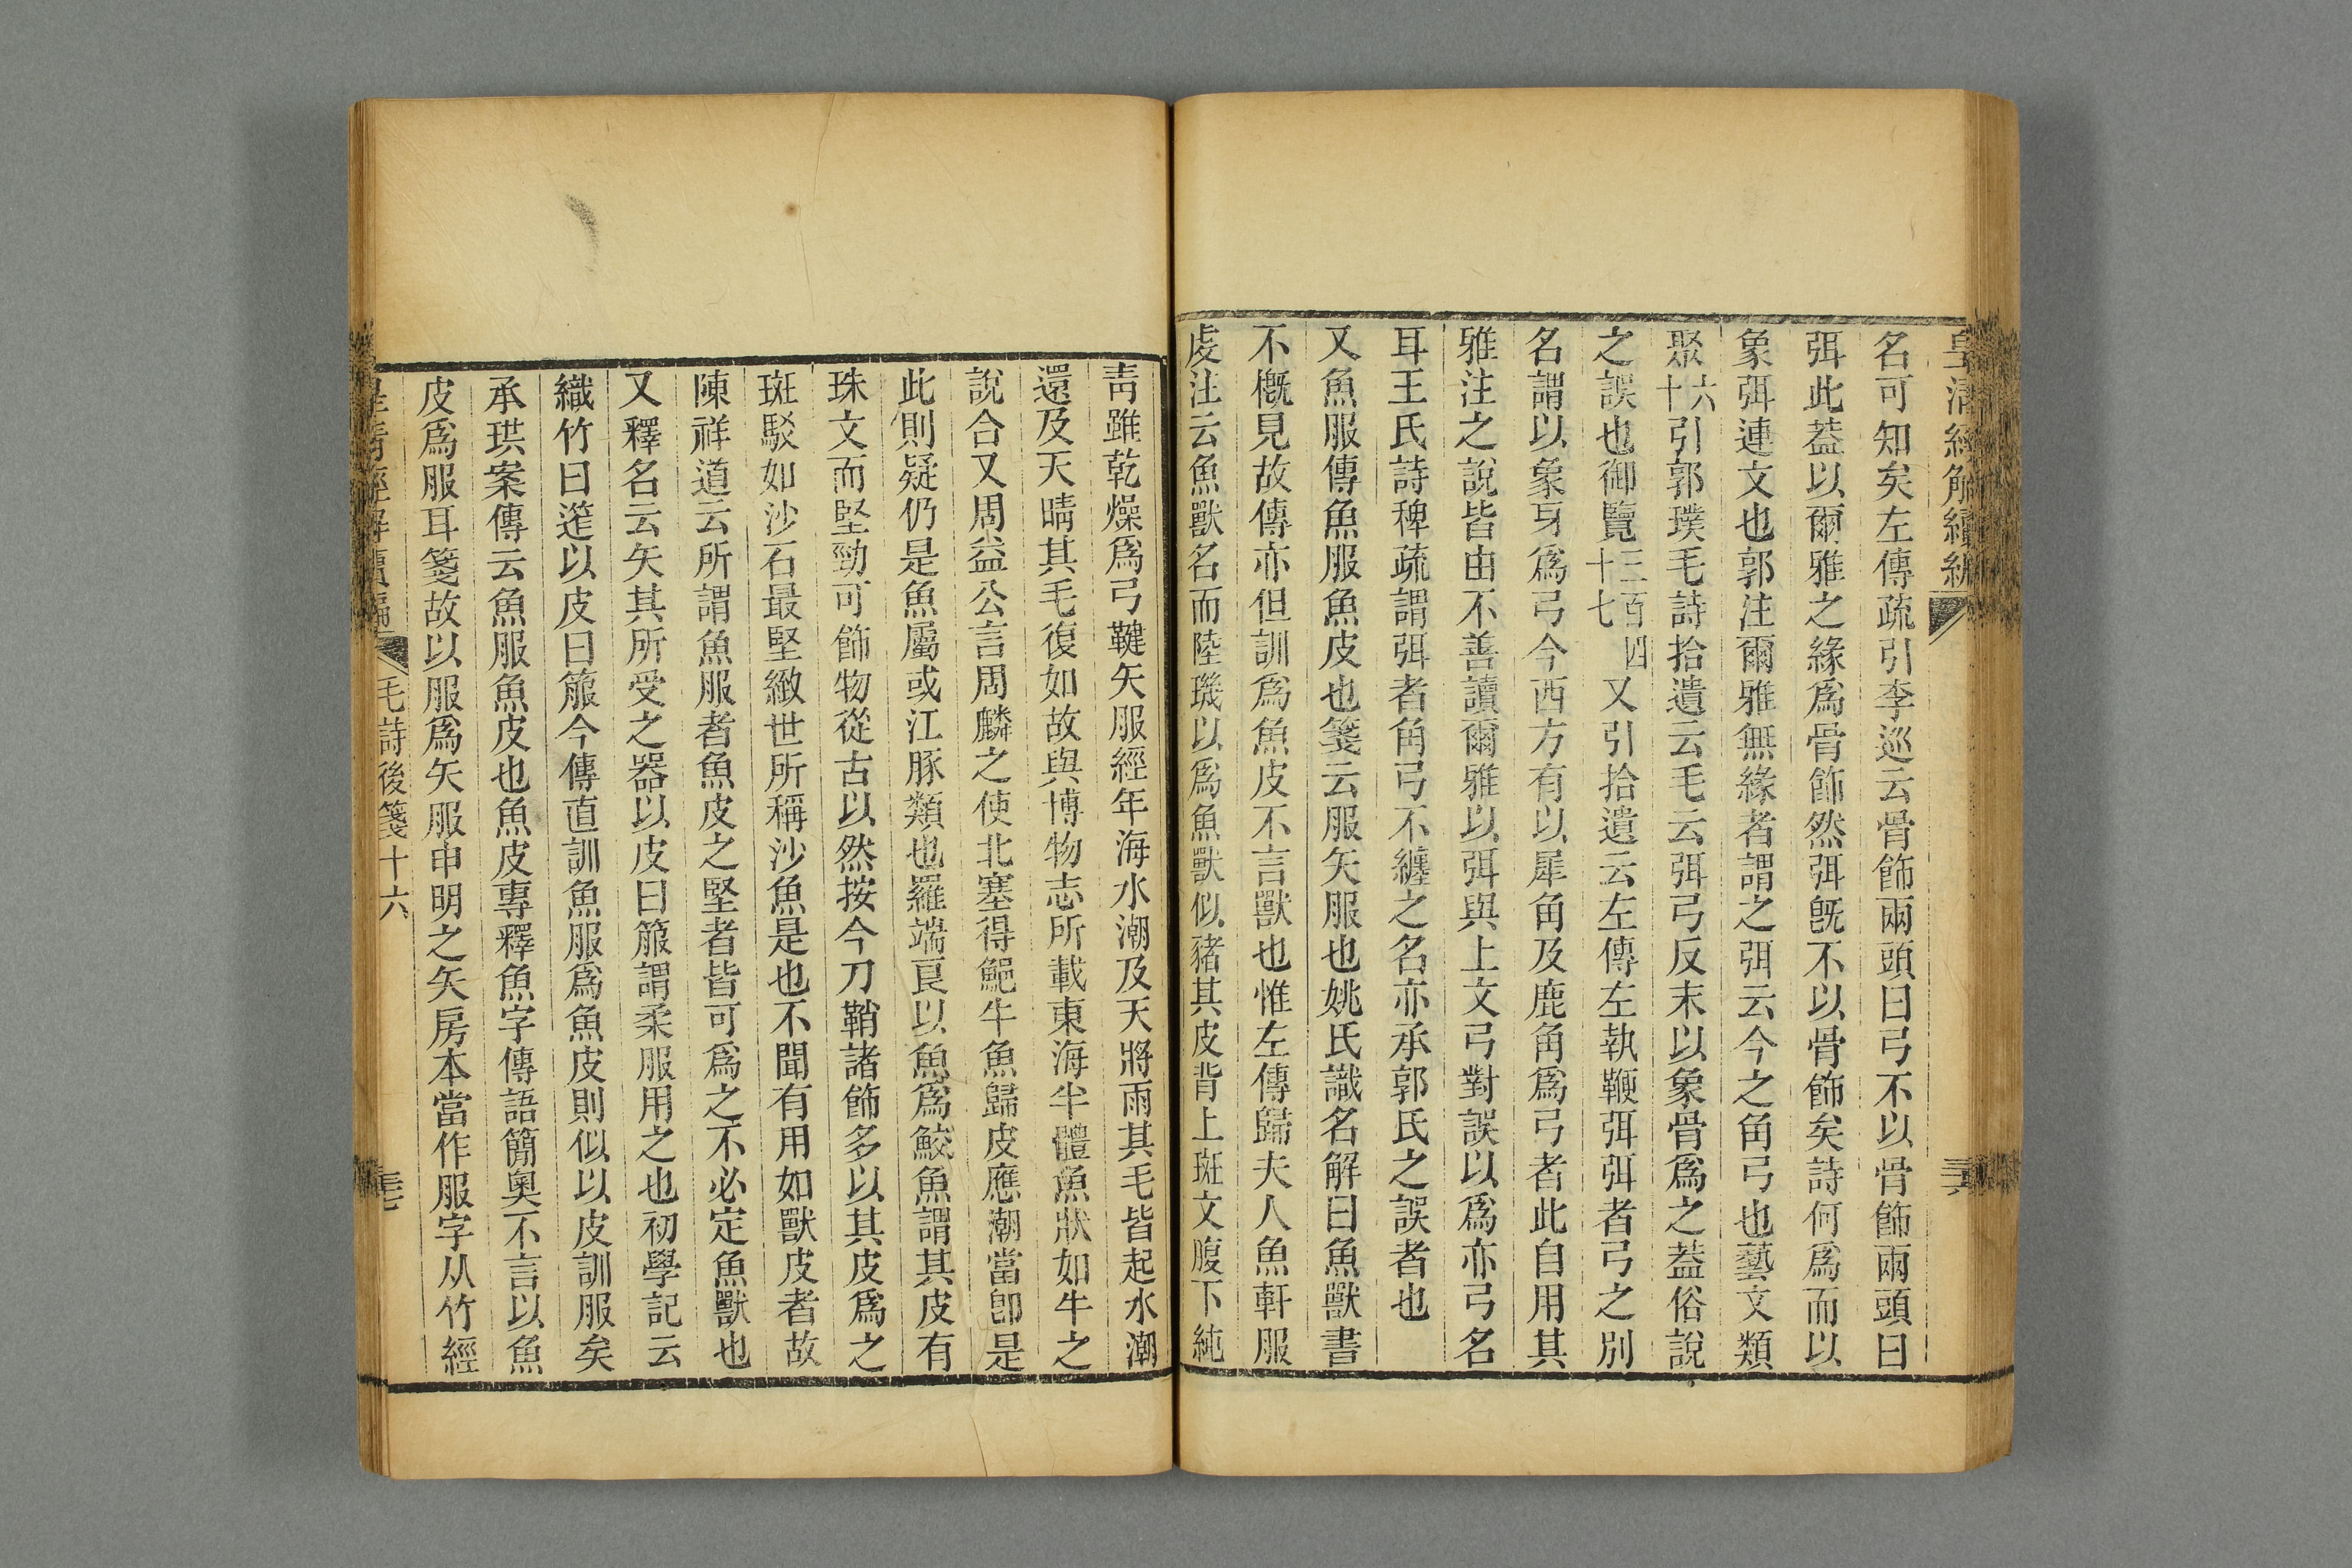 皇清經解續編
名可知矣左傳疏引李巡云骨飾兩頭曰弓不以骨飾兩頭曰
弭此葢以爾雅之緣爲骨飾然弭旣不以骨飾矣詩何爲而以
象弭連文也郭注爾雅無緣者謂之弭云今之角弓也藝文類
聚六十引郭璞毛詩拾遺云毛云弭弓反末以象骨爲之葢俗說
之誤也御覽三百四十七又引拾遺云左傳左執鞭弭弭者弓之別
名謂以象牙爲弓今西方有以犀角及鹿角爲弓者此自用其
雅注之說皆由不善讀爾雅以弭與上文弓對誤以爲亦弓名
耳王氏詩稗疏謂弭者角弓不纏之名亦承郭氏之誤者也
又魚服傳魚服魚皮也箋云服矢服也姚氏識名解曰魚獸書
不槪見故傳亦但訓爲魚皮不言獸也惟左傳歸夫人魚軒服
虔注云魚獸名而陸璣以爲魚獸似豬其皮背上斑文腹下純
靑雖乾燥爲弓鞬矢服經年海水潮及天將雨其毛皆起水潮
還及天晴其毛復如故與博物志所載東海半體魚狀如牛之
說合又周益公言周麟之使北塞得鮑牛魚歸皮應潮當卽是
此則疑仍是魚屬或江豚類也羅端良以魚爲鮫魚謂其皮有
珠文而堅勁可飾物從古以然按今刀鞘諸飾多以其皮爲之
斑駁如沙石最堅緻世所稱沙魚是也不聞有用如獸皮者故
陳祥道云所謂魚服者魚皮之堅者皆可爲之不必定魚獸也
又釋名云矢其所受之器以皮曰箙謂柔服用之也初學記云
織竹曰笮以皮曰箙今傳直訓魚服爲魚皮則似以皮訓服矣
承珙案傳云魚服魚皮也魚皮專釋魚字傳語簡奧不言以魚
皮爲服耳箋故以服爲矢服申明之矢房本當作服字从竹經
毛詩後箋十六